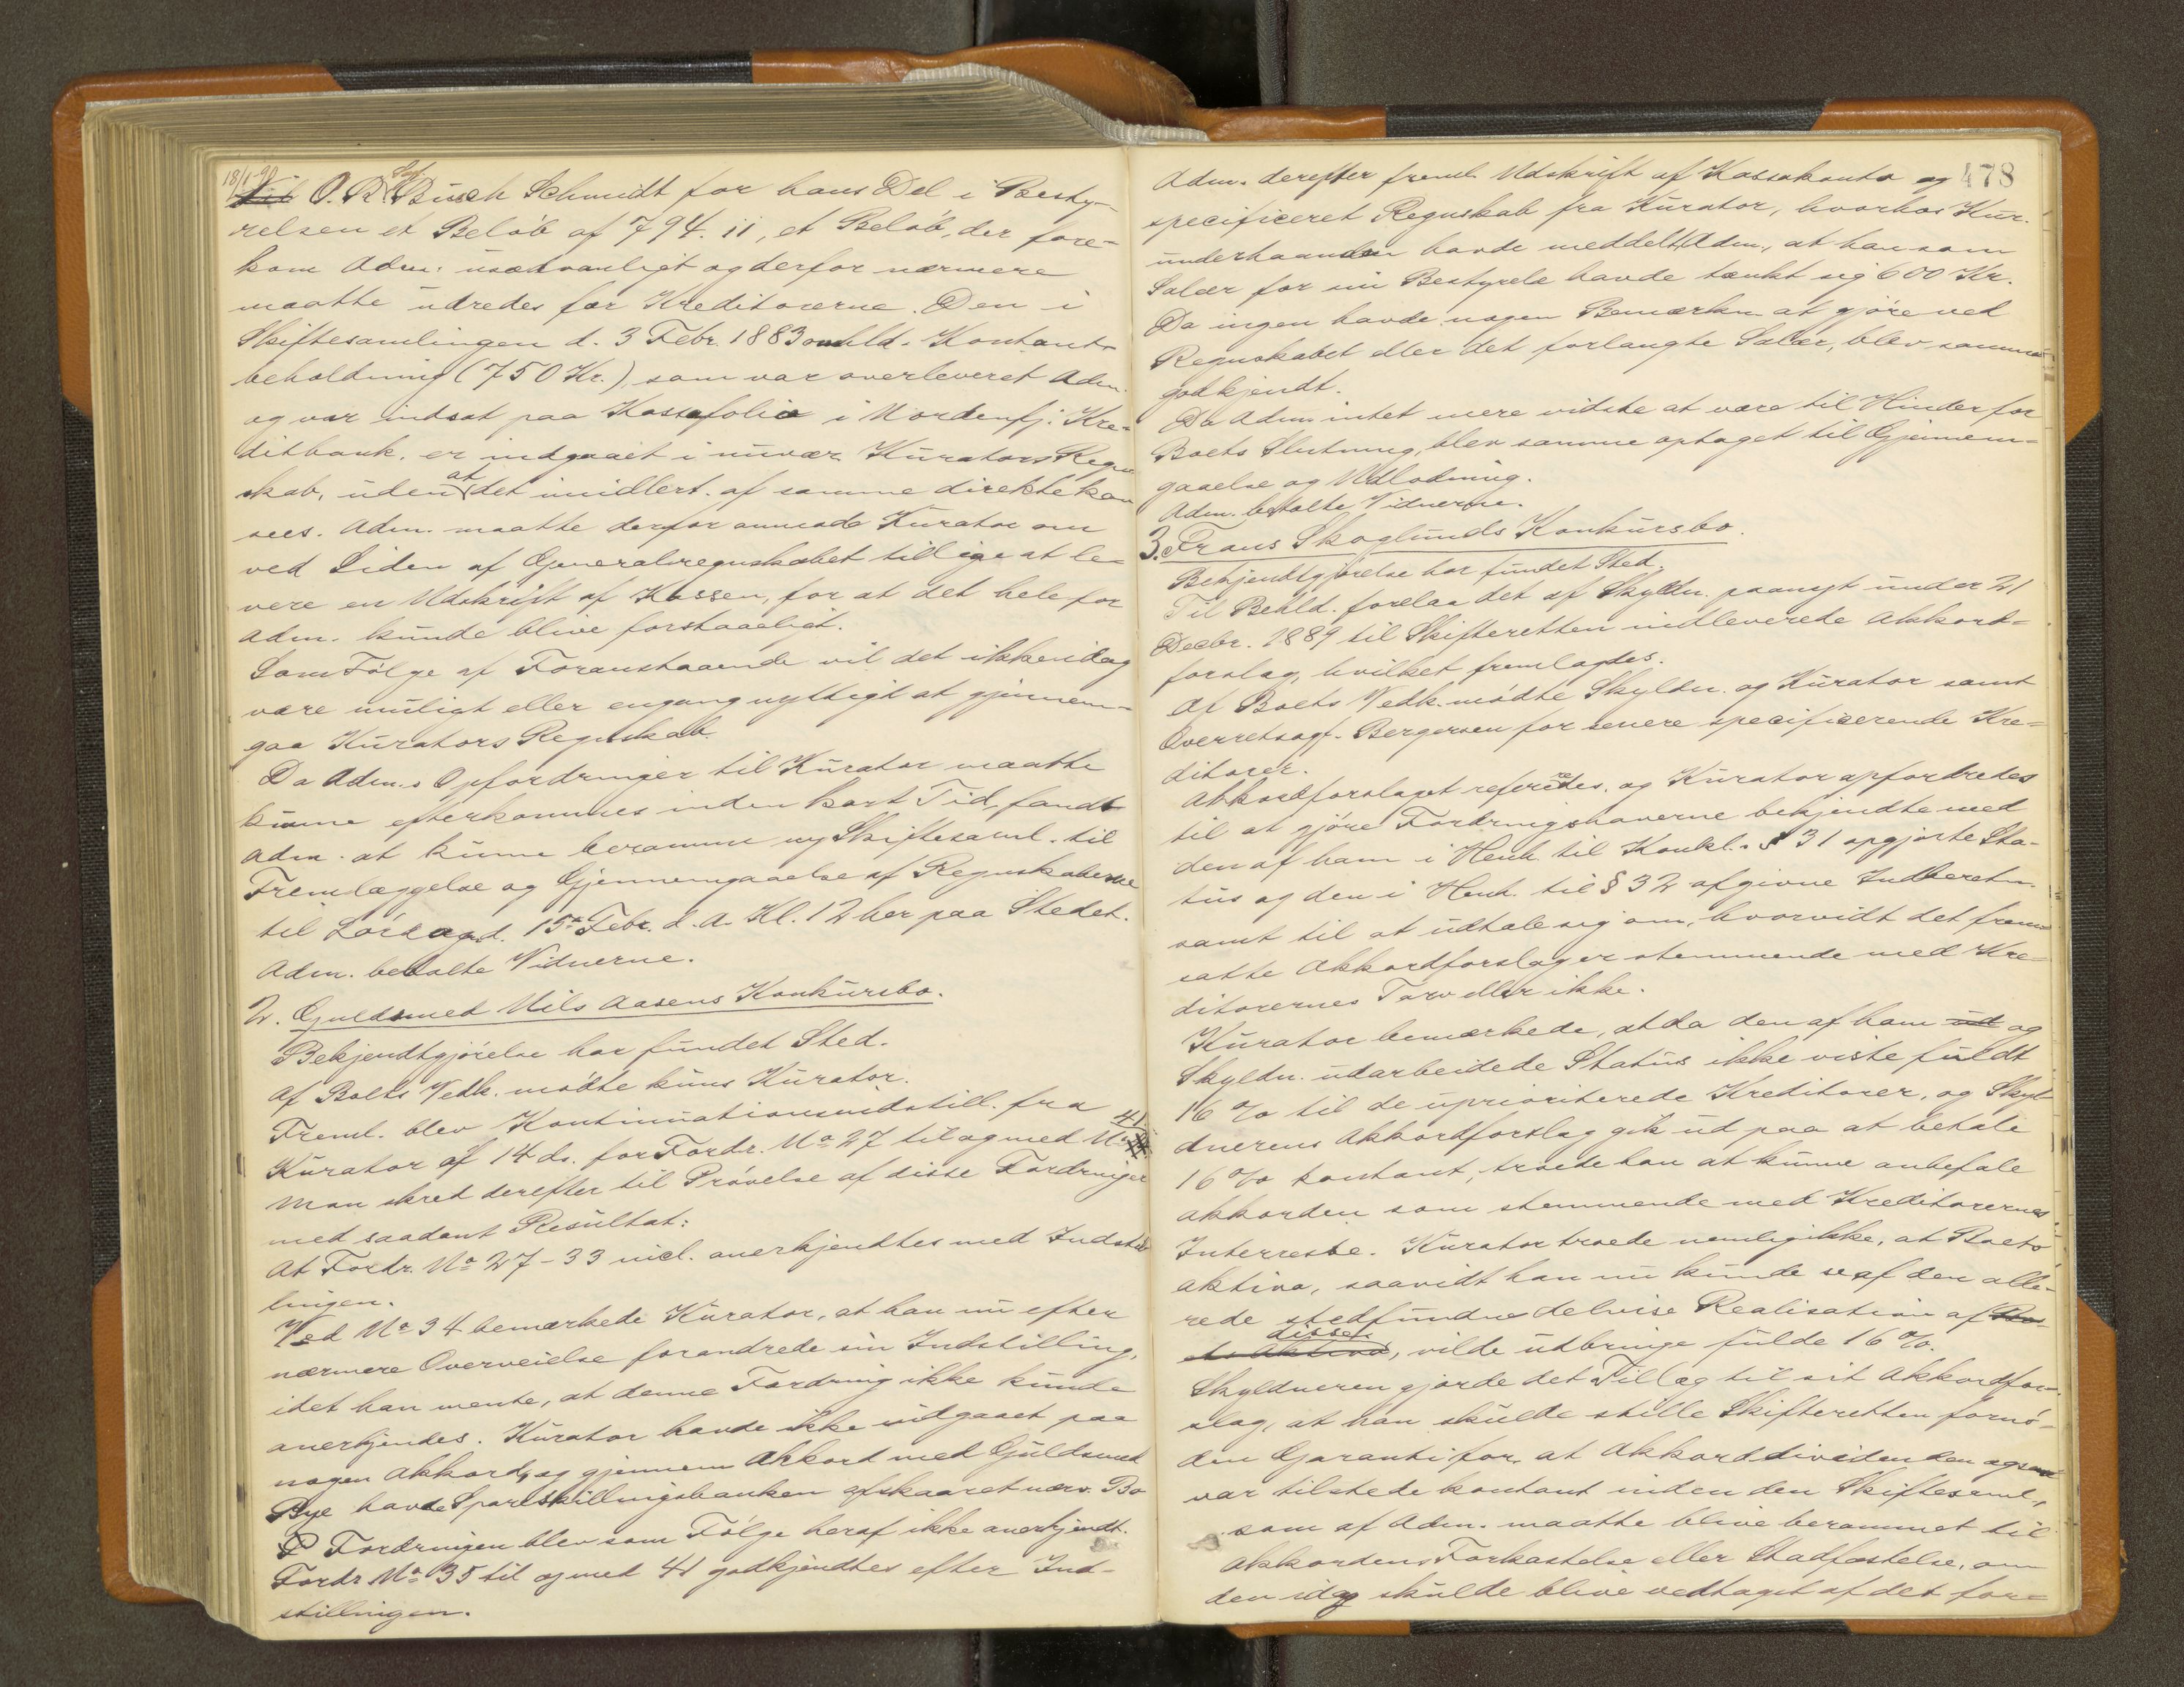 18/1 90
O. R. Sagf. Busch Schmidt for hans Del i Besty-
relsen et Beløb af 794.11, et Beløb, der fore-
kom Adm. usædvanligt og derfor nærmere
maatte udredes for Kreditorerne. Den i
Skiftesamlingen d. 3 Febr. 1883 omhld. Kontant-
beholdning (750 Kr.), som var overleveret Adm.
og var indsat paa Kassafolio i Nordenfj. Kre-
ditbank, er indgaaet i nuvær. Kurators Regn-
skab, uden at det imidlert. af samme direkte kan
sees. Adm. maatte derfor anmode Kurator om
ved Siden af Generalregnskabet tillige at le-
vere en Udskrift af Kassen, for at det hele for
Adm. kunde blive forstaaeligt.
Som Følge af Foranstaaende vil det ikke idag
være muligt eller engang nyttigt at gjennem-
gaa Kurators Regnskab.
Da Adm.s Opfordringer til Kurator maatte
kunne efterkommes inden kort Tid, fandt
Adm. at kunne beramme ny Skiftesaml. til
Fremlæggelse og Gjennemgaaelse af Regnskaberne
til Lørdag d. 15de Febr. d. A. Kl. 12 her paa Stedet.
Adm. betalte Vidnerne.
2. Guldsmed Nils Aasens Konkursbo.
Bekjendtgjørelse har fundet Sted.
Af Boets Vedk. mødte kuns Kurator.
Freml. blev Kontinuationsindstill. fra
Kurator af 14 ds. for Fordr. No 27 til og med No 41
Man skred derefter til Prøvelse af disse Fordringer
med saadant Resultat:
At Fordr. No 27-33 incl. anerkjendtes med Indstil-
lingen.
Ved No 34 bemærkede Kurator, at han nu efter
nærmere Overveielse forandrede sin Indstilling,
idet han mente, at denne Fordring ikke kunde
anerkjendes. Kurator havde ikke indgaaet paa
nogen Akkord, og gjennem Akkord med Guldsmed
Bye havde Spareskillingsbanken afskaaret nærv. Bo
Fordringen blev som Følge heraf ikke anerkjendt.
Fordr No 35 til og med 41 godkjendtes efter Ind-
stillingen.
478
Adm. derefter freml. Udskrift af Kassakonto og
specificeret Regnskab fra Kurator, hvorhos Kur.
underhaanden havde meddelt Adm., at han som
Salær for sin Bestyrelse havde tænkt sig 600 Kr.
Da ingen havde nogen Bemærkn. at gjøre ved
Regnskabet eller det forlangte Salær, blev samme
godkjendt.
Da Adm. intet mere vidste at være til Hinder for
Boets Slutning, blev samme optaget til Gjennem-
gaaelse og Udlodning.
Adm. betalte Vidnerne.
3. Frans Skoglunds Konkursbo.
Bekjendtgjørelse har fundet Sted.
Til Behld. forelaa det af Skyldn. paanyt under 21
Decbr. 1889 til Skifteretten indleverede Akkord-
forslag, hvilket fremlagdes.
Af Boets Vedk. mødte Skyldn. og Kurator samt
Overretssagf. Bergersen for senere specificerende Kre-
ditorer.
Akkordforslaget refereredes, og Kurator opfordredes
til at gjøre Fordringshaverne bekjendte med
den af ham i Henh. til Konkl. § 31 opgjorte Sta-
tus og den i Henh. til § 32 afgivne Indberetn.
samt til at udtale sig om, hvorvidt det frem-
satte Akkordforslag er stemmende med Kre-
ditorernes Tarv eller ikke.
Kurator bemærkede, at da den af ham ud og
Skyldn. udarbeidede Status ikke viste fuldt
16 % til de uprioriterede Kreditorer, og Skyl-
dnerens Akkordforslag gik ud paa at betale
16 % kontant, troede han at kunne anbefale
Akkorden som stemmende med Kreditorernes
Interresse. Kurator troede nemlig ikke, at Boets
Aktiva, saavidt han nu kunde se af den alle-
rede stedfundne delvise Realisation af Bo-
ets Aktiva disse, vilde udbringe fulde 16 %.
Skyldneren gjorde det Tillæg til sit Akkordfor-
slag, at han skulde stille Skifteretten fornø-
den Garanti for, at Akkorddividenden ogsaa
var tilstede kontant inden den Skiftesaml.,
som af Adm. maatte blive berammet til
Akkordens Forkastelse eller Stadfæstelse, om
den idag skulde blive vedtaget af det for-